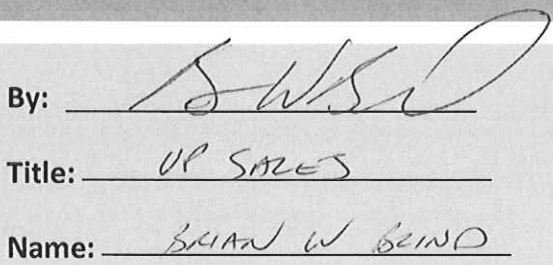 By:
Title: VP SALES
Name: BRIAN W BLIND